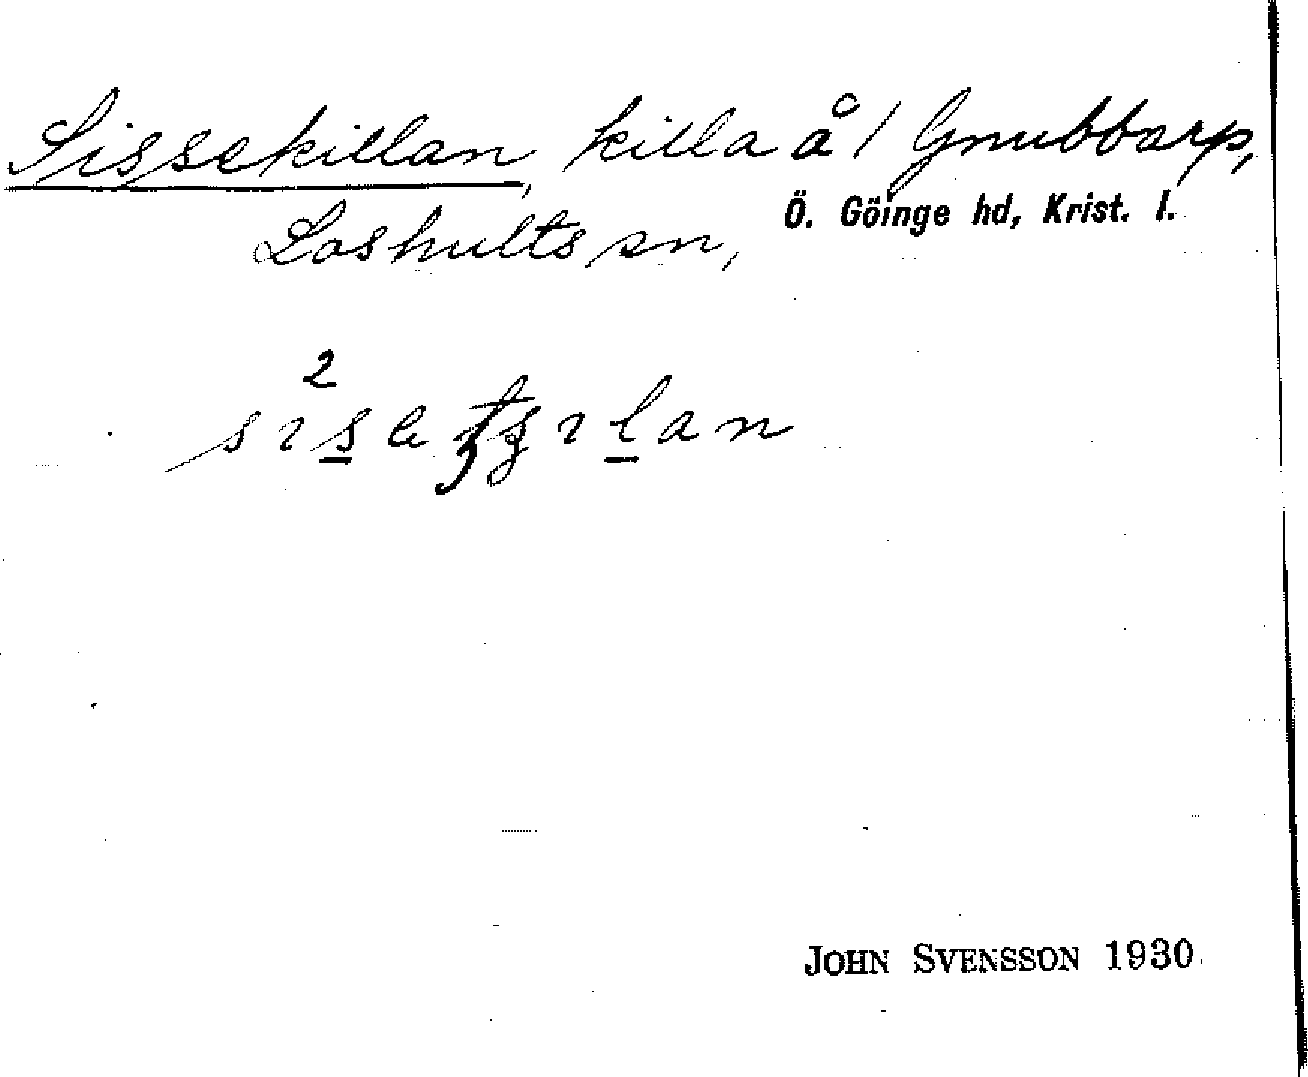 Sissekillan, killa å / Gnubbarp,
Loshults sn, Ö. Göinge hd, Krist. l.
2
JOHN SVENSSON 1930